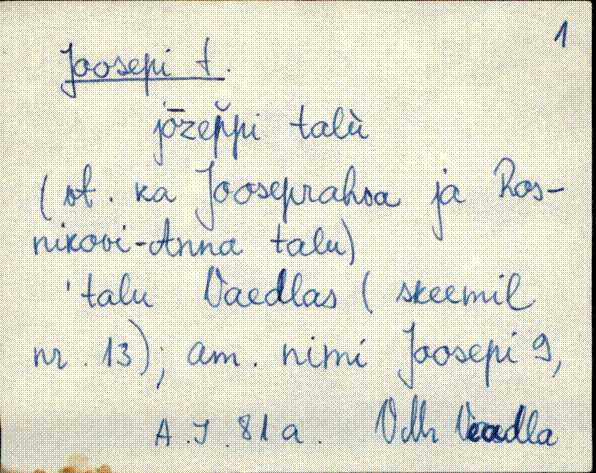 1
Joosepi t.
jōzep̆pi talù
(vt. ka Jooseprahva ja Ros-
nikovi-Anna talu)
'talu Vaedlas (skeemil
nr. 13); am. nimi Joosepi 9,
A.J. 81a. Vdlr Vaedla